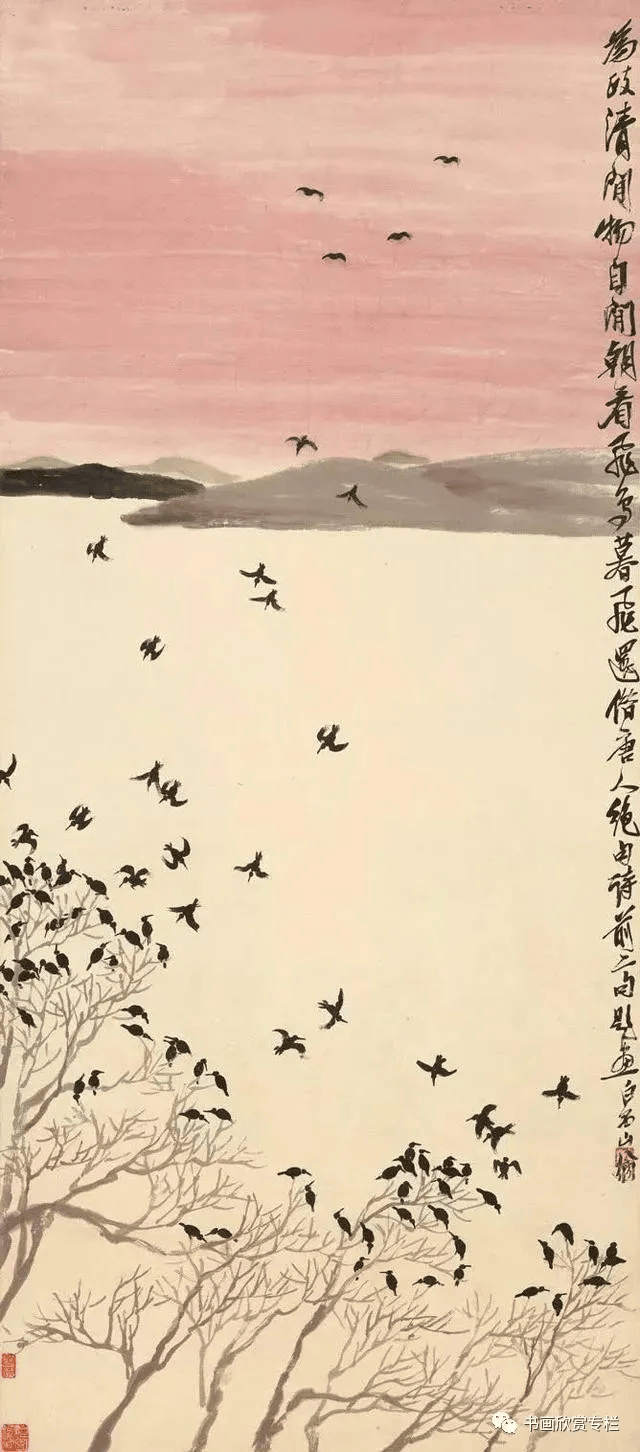 為政清閒物自閒朝看飛鳥暮飛還借唐人絶句詩前二句題畫白石山翁
书画欣赏专栏